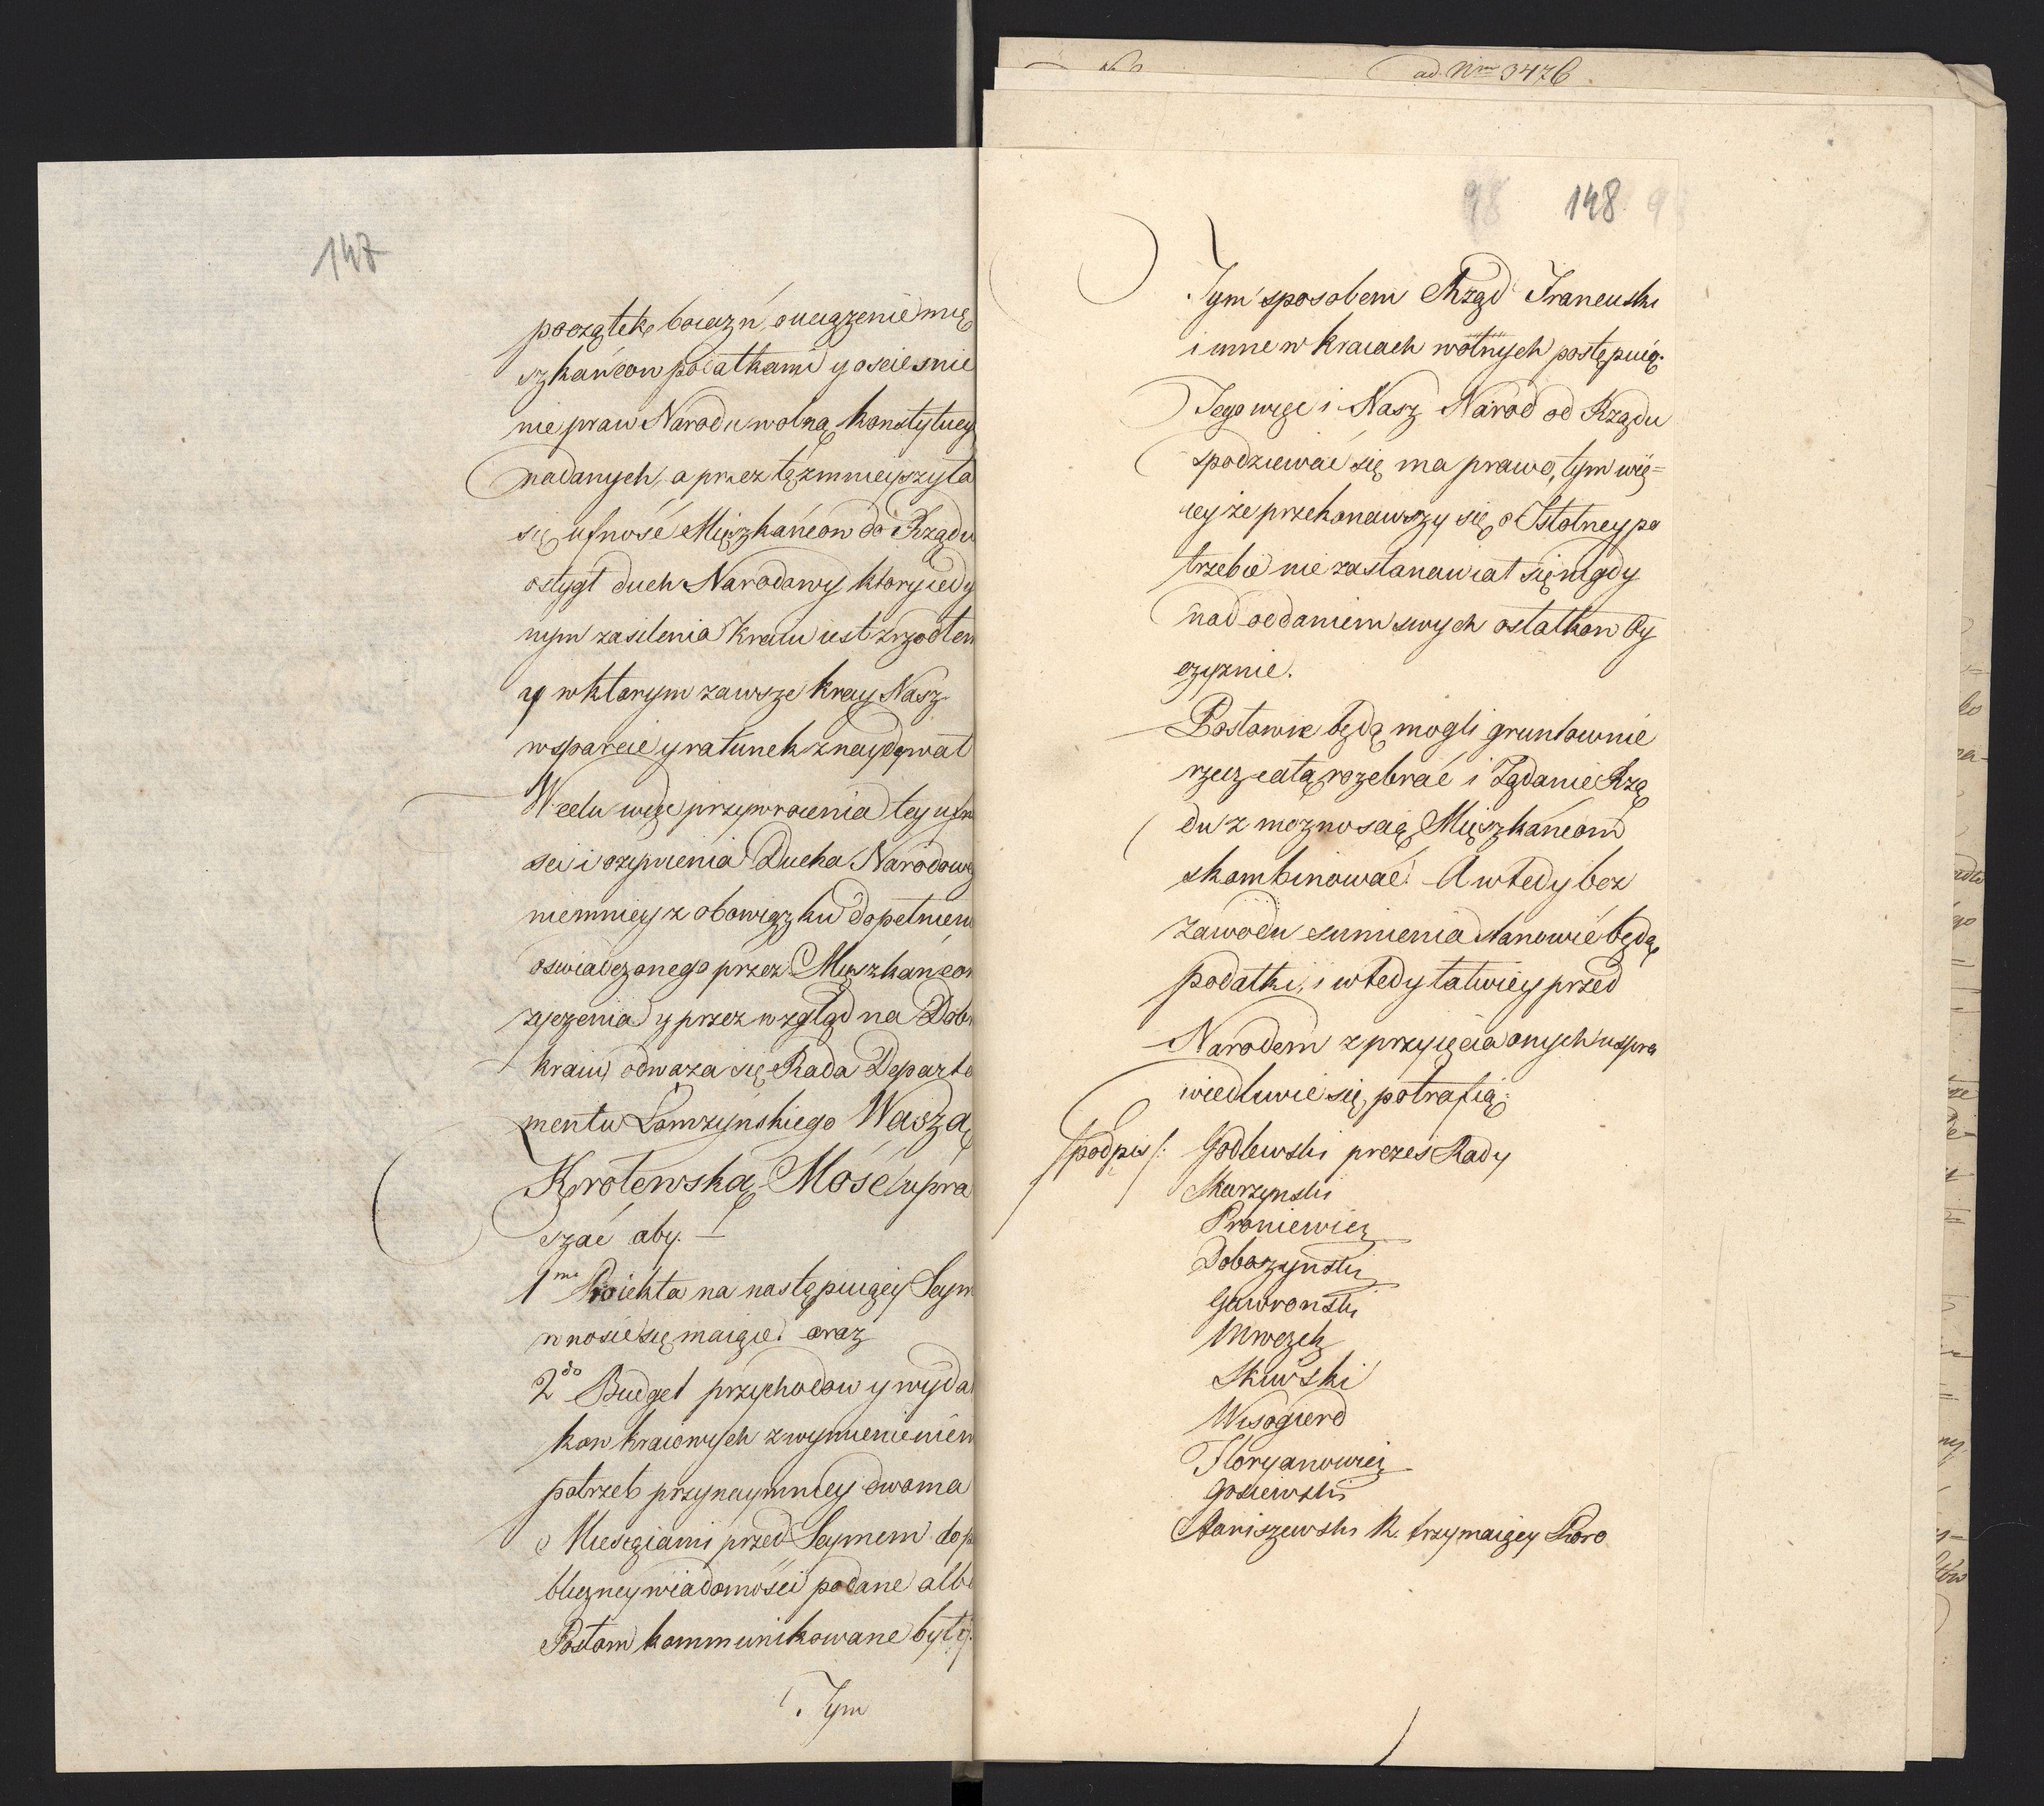 147
początek boiaźń, o uciążenie mię
szkańcow podatkami y oscieśnie
nie praw Narodu wolną konstytucy
nadanych, a przez tę zmnieyszyła
się ufność Mięszkańcow do Rządu
ostygł duch Narodowy, ktory iedy
nym zasilenia kraiu iest zrzodłem
y w ktorym zawsze kray Nasz
wsparcie y ratunek znaydował
W celu więc przywrocenia tey ufno
sci i ożywienia Ducha Narodowe
niemniey z obowiązku dopełnieni
oswiadczonego przez Mięszkańcow
życzenia y przez wzgląd na Dobr
kraiu, odważa się Rada Departa
mentu Łomżyńskiego Waszą
Krolewską Mość upra
szać aby. —
1mo Proiekta na następuiącey Seym
wnosić się maiące oraz
2do Budget przychodow y wydat
kow kraiowych z wymienieniem
potrzeb przynaymniey dwoma
Miesiącami przed Seymem do p
bliczney wiadomości podane albo
Posłom kommunikowane były.
Tym
ad Nrm 3476
98 148
Tym sposobem Rząd Francuski
i inne w kraiach wolnych postępuią.
Tego więc i Nasz Naród od Rządu
spodziewać się ma prawo, tym wię=
cey że przekonawszy się o Istotney po
trzebie nie zastanawiał się nigdy
nad oddaniem swych ostatkow Oy
czyznie.
Posłowie będą mogli gruntownie
rzecz całą rozebrać i Żądanie Rzą
du z możnoscią Mięszkańcom
skombinować. A wtedy bez
zawodu sumienia stanowić będą
podatki, i wtedy łatwiey przed
Narodem z przyięcia onych uspra
wiedliwić się potrafią.
/podpis/: Godlewski prezes Rady
Skarzynski
Proniewicz
Doboszynski
Gawronski
Mroczek
Skiwski
Wisogierd
Floryanowicz
Gosiewski
Staniszewski R. trzymaiący Pioro